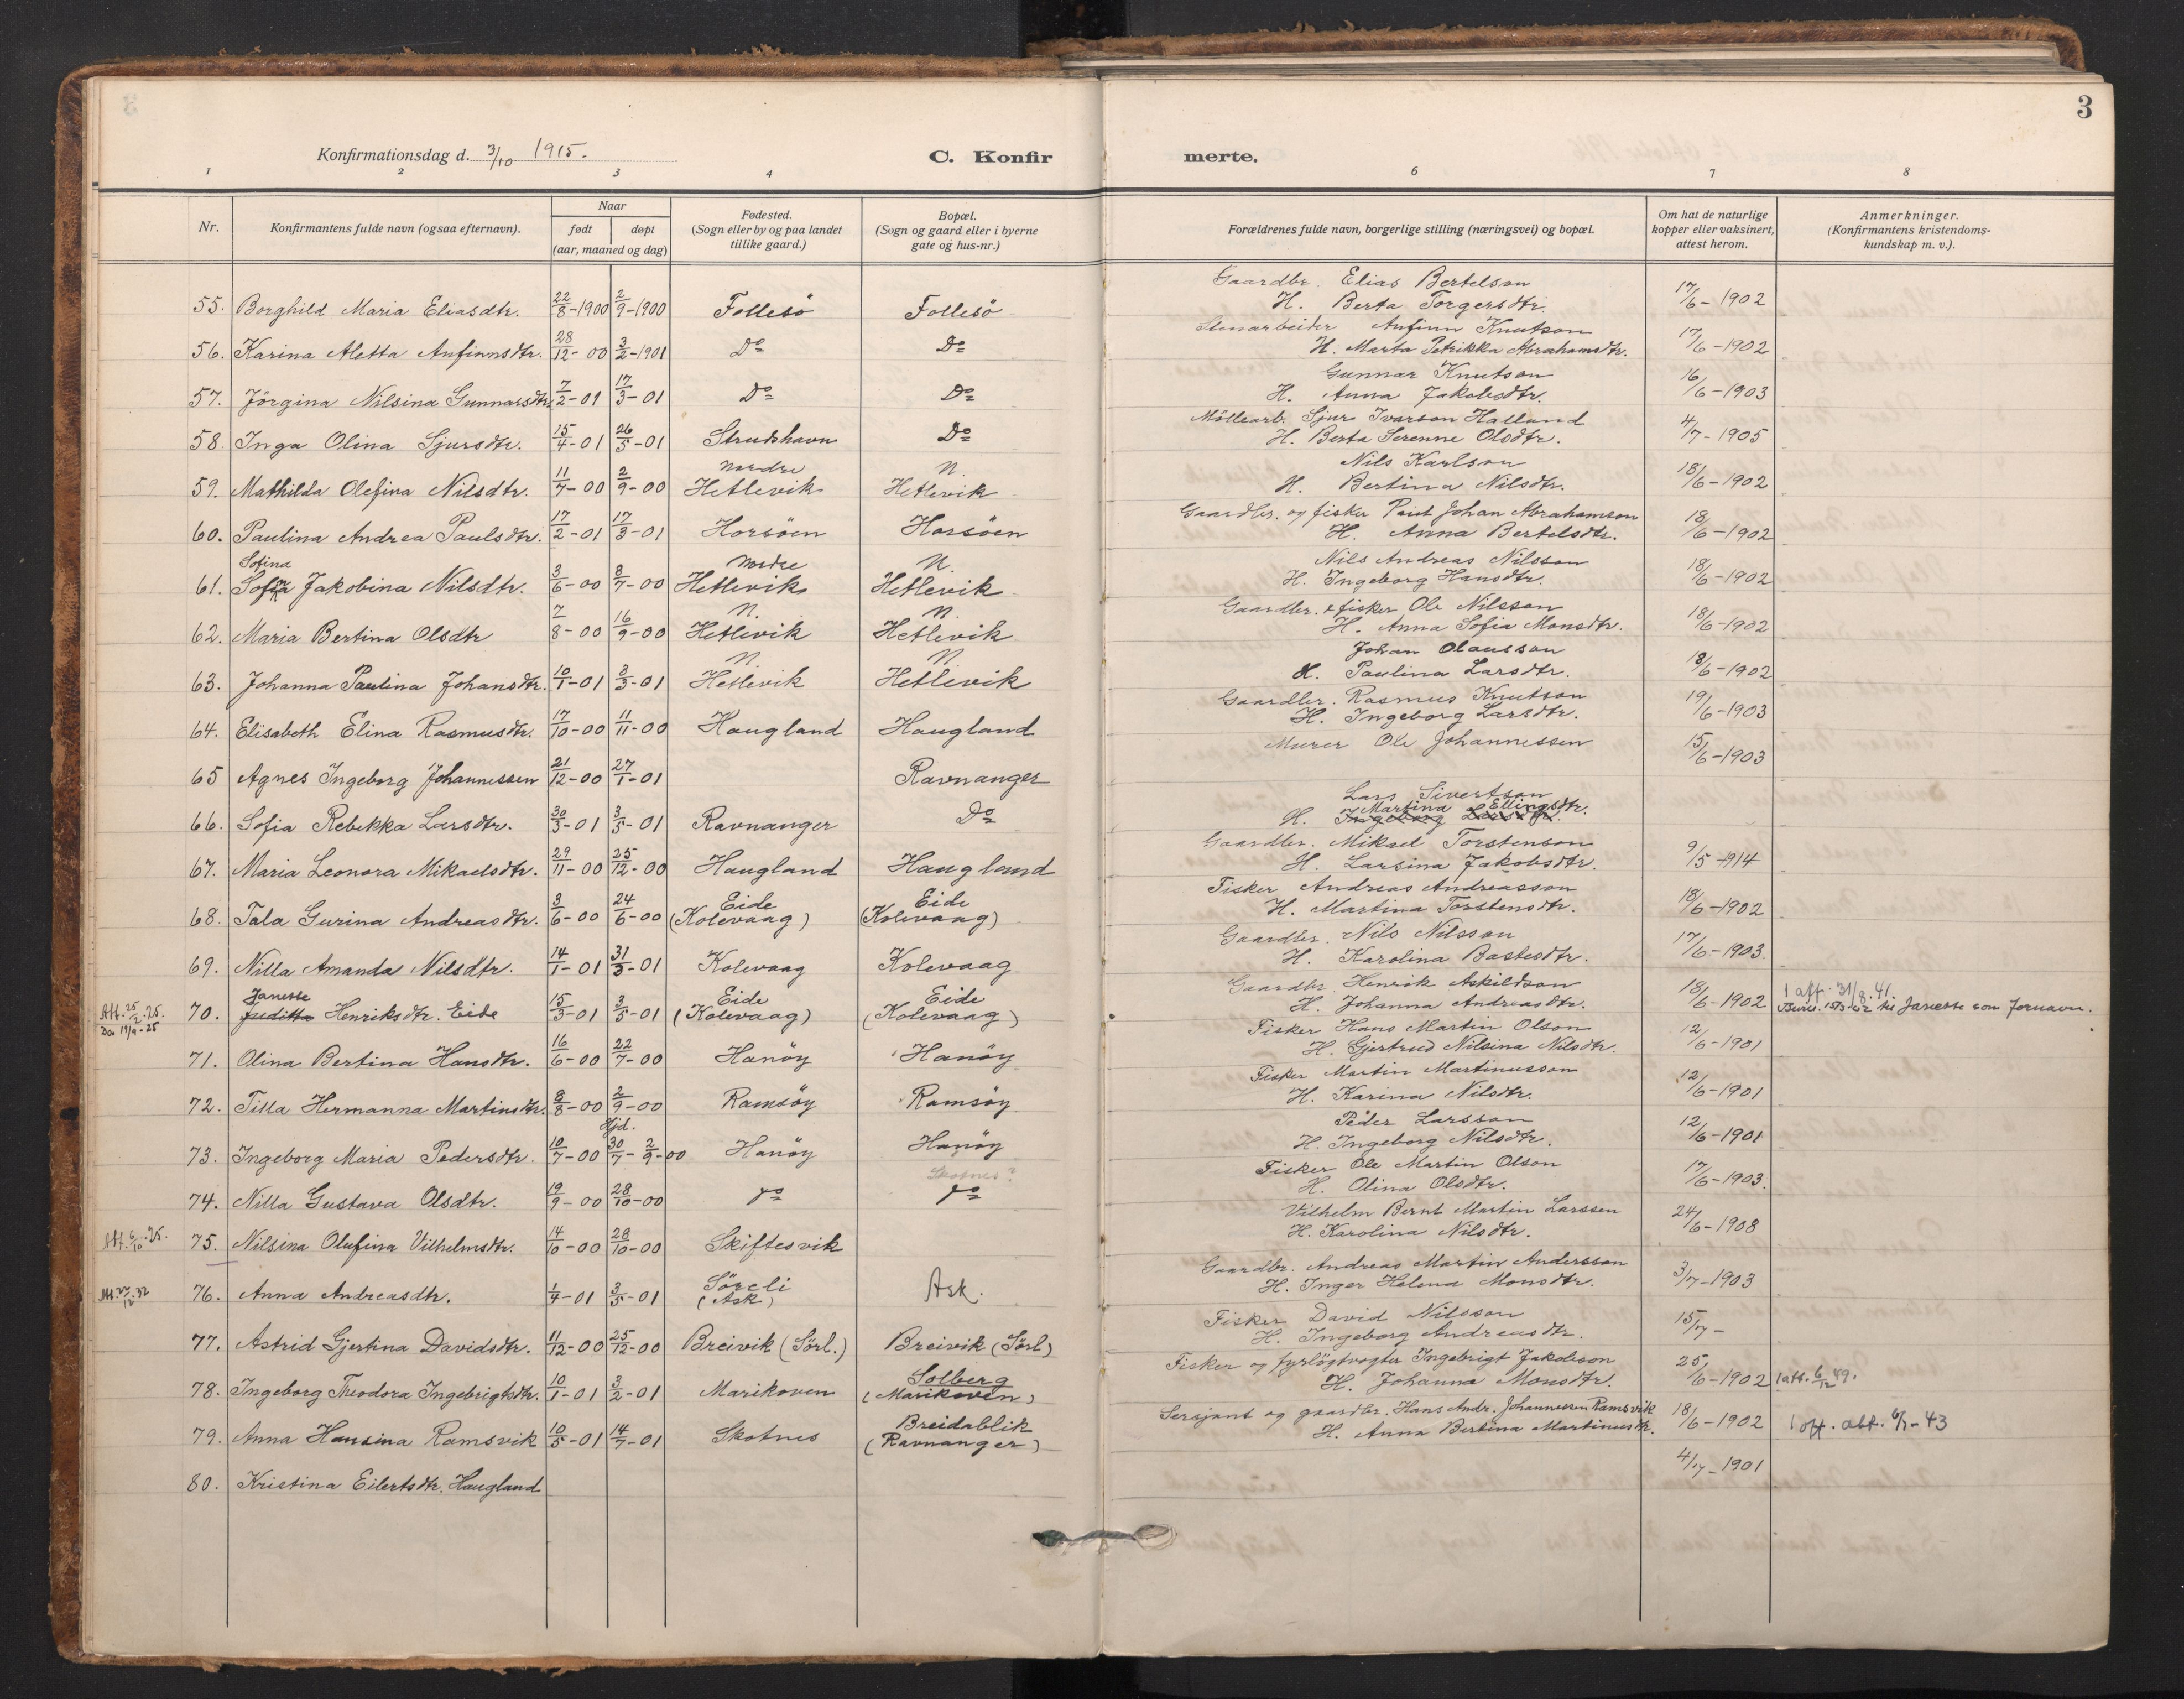 3
Konfirmationsdag d. 3/10 1915.
C. Konfirmerte.
1 2 3 4 6 7 8
Nr. | Konfirmantens fulde navn (ogsaa efternavn). | Naar født | døpt (aar, maaned og dag) | Fødested. (Sogn eller by og paa landet tillike gaard.) | Bopæl. (Sogn og gaard eller i byerne gate og hus-nr.) | Forældrenes fulde navn, borgerlige stilling (næringsvei) og bopæl. | Om hat de naturlige kopper eller vaksinert, attest herom. | Anmerkninger. (Konfirmantens kristendomskundskap m. v.).
55. Borghild Maria Eliasdtr. 22/8-1900 2/9-1900 Follesö Follesö Gaardbr. Elias Bertelson H. Berta Torgersdtr. 17/6-1902
56. Karina Aletta Anfinnsdtr. 28/12-00 3/2-1901 Do Do Stenarbeider Anfinn Knutson H. Marta Petrikka Abrahamsdtr. 17/6-1902
57. Jörgina Nilsina Gunnarsdtr. 7/2-01 17/3-01 Do Do Gunnar Knutson H. Anna Jakobsdtr. 16/6-1903
58. Inga Olina Sjursdtr. 15/4-01 26/5-01 Strudshavn Do Möllearb. Sjur Ivarson Halland H. Berta Serenne Olsdtr. 4/7-1905
59. Mathilda Olefina Nilsdtr. 11/7-00 2/9-00 Nordre Hetlevik N. Hetlevik Nils Karlson H. Bertina Nilsdtr. 18/6-1902
60. Paulina Andrea Paulsdtr. 17/2-01 17/3-01 Horsöen Horsöen Gaardbr. og fisker Paul Johan Abrahamson H. Anna Bertelsdtr. 18/6-1902
61. Sofina Sofia Jakobina Nilsdtr. 3/6-00 8/7-00 Nordre Hetlevik N. Hetlevik Nils Andreas Nilsson H. Ingeborg Hansdtr. 18/6-1902
62. Maria Bertina Olsdtr 7/8-00 16/9-00 N. Hetlevik N. Hetlevik Gaardbr. & fisker Ole Nilsson H. Anna Sofia Monsdtr. 18/6-1902
63. Johanna Paulina Johansdtr. 10/1-01 3/3-01 N. Hetlevik N. Hetlevik Johan Olausson H. Paulina Larsdtr. 18/6-1902
64. Elisabeth Elina Rasmusdtr. 17/10-00 11/11-00 Haugland Haugland Gaardbr. Rasmus Knutson H. Ingeborg Larsdtr. 19/6-1903
65 Agnes Ingeborg Johannessen 21/12-00 27/1-01 Ravnanger Murer Ole Johannessen 15/6-1903
66. Sofia Rebekka Larsdtr. 30/3-01 3/5-01 Ravnanger Do Lars Sivertson H. Martina Ellingsdtr. Ingeborg Larsdtr. 
67. Maria Leonora Mikaelsdtr. 29/11-00 25/12-00 Haugland Haugland Gaardbr. Mikael Torstenson H. Larsina Jakobsdtr. 9/5-1914
68. Tala Gurina Andreasdtr. 3/6-00 24/6-00 Eide (Kolevaag) Eide (Kolevaag) Fisker Andreas Andreasson H. Martina Torstensdtr. 18/6-1902
69. Nilla Amanda Nilsdtr. 14/1-01 31/3-01 Kolevaag Kolevaag Gaardbr. Nils Nilsson H. Karolina Bastesdtr. 17/6-1903.
Att. 25/2.25. Do. 19/9-25 70. Janette Juditta Henriksdtr. Eide 15/3-01 3/5-01 Eide (Kolevaag) Eide (Kolevaag) Gaardbr. Henrik Askildson H. Johanna Andreasdtr. 18/6-1902 1 att. 31/8.41. til Janette som fornavn.
71. Olina Bertina Hansdtr. 16/6-00 22/7-00 Hanöy Hanöy Fisker Hans Martin Olson H. Gjertrud Nilsina Nilsdtr. 12/6-1901
72. Tilla Hermanna Martinsdtr. 8/8-00 2/9-00 Ramsöy Ramsöy Fisker Martin Martinusson H. Karina Nilsdtr. 12/6-1901
73. Ingeborg Maria Pedersdtr. 10/7-00 Hjd. 30/7- 2/9-00 Hanöy Hanöy Peder Larsson H. Ingeborg Nilsdtr. 12/6-1901
74. Nilla Gustava Olsdtr. 19/9-00 28/10-00 do Skotnes? do Fisker Ole Martin Olson H. Olina Olsdtr. 17/6-1903.
Att. 6/10.25. 75. Nilsina Olufina Vilhelmsdtr. 14/10-00 28/10-00 Skiftesvik Vilhelm Bernt Martin Larssen H. Karolina Nilsdtr. 24/6-1908
Att. 27/12.32 76. Anna Andreasdtr. 1/4-01 3/5-01 Söreli (Ask) Ask. Gaardbr. Andreas Martin Andersson H. Inger Helena Monsdtr. 3/7-1903
77. Astrid Gjertina Davidsdtr. 11/12-00 25/12-00 Breivik (Sörl.) Breivik (Sörl) Fisker David Nilsson H. Ingeborg Andreasdtr. 15/17-
78. Ingeborg Theodora Ingebrigtsdtr. 10/1-01 3/2-01 Marikoven Solberg (Marikoven) Fisker og fyrlögtvogter Ingebrigt Jakobson H. Johanna Monsdtr. 25/6-1902 1 att. 6/12 49.
79. Anna Hansina Ramsvik 10/5-01 14/7-01 Skotnes Breidablik (Ravnanger) Sersjant og gaardbr. Hans Andr. Johannessen Ramsvik H. Anna Bertina Martinusdtr. 18/6-1902 1 off. att. 6/7-43
80. Kristina Eilertsdtr. Haugland 4/17-1901